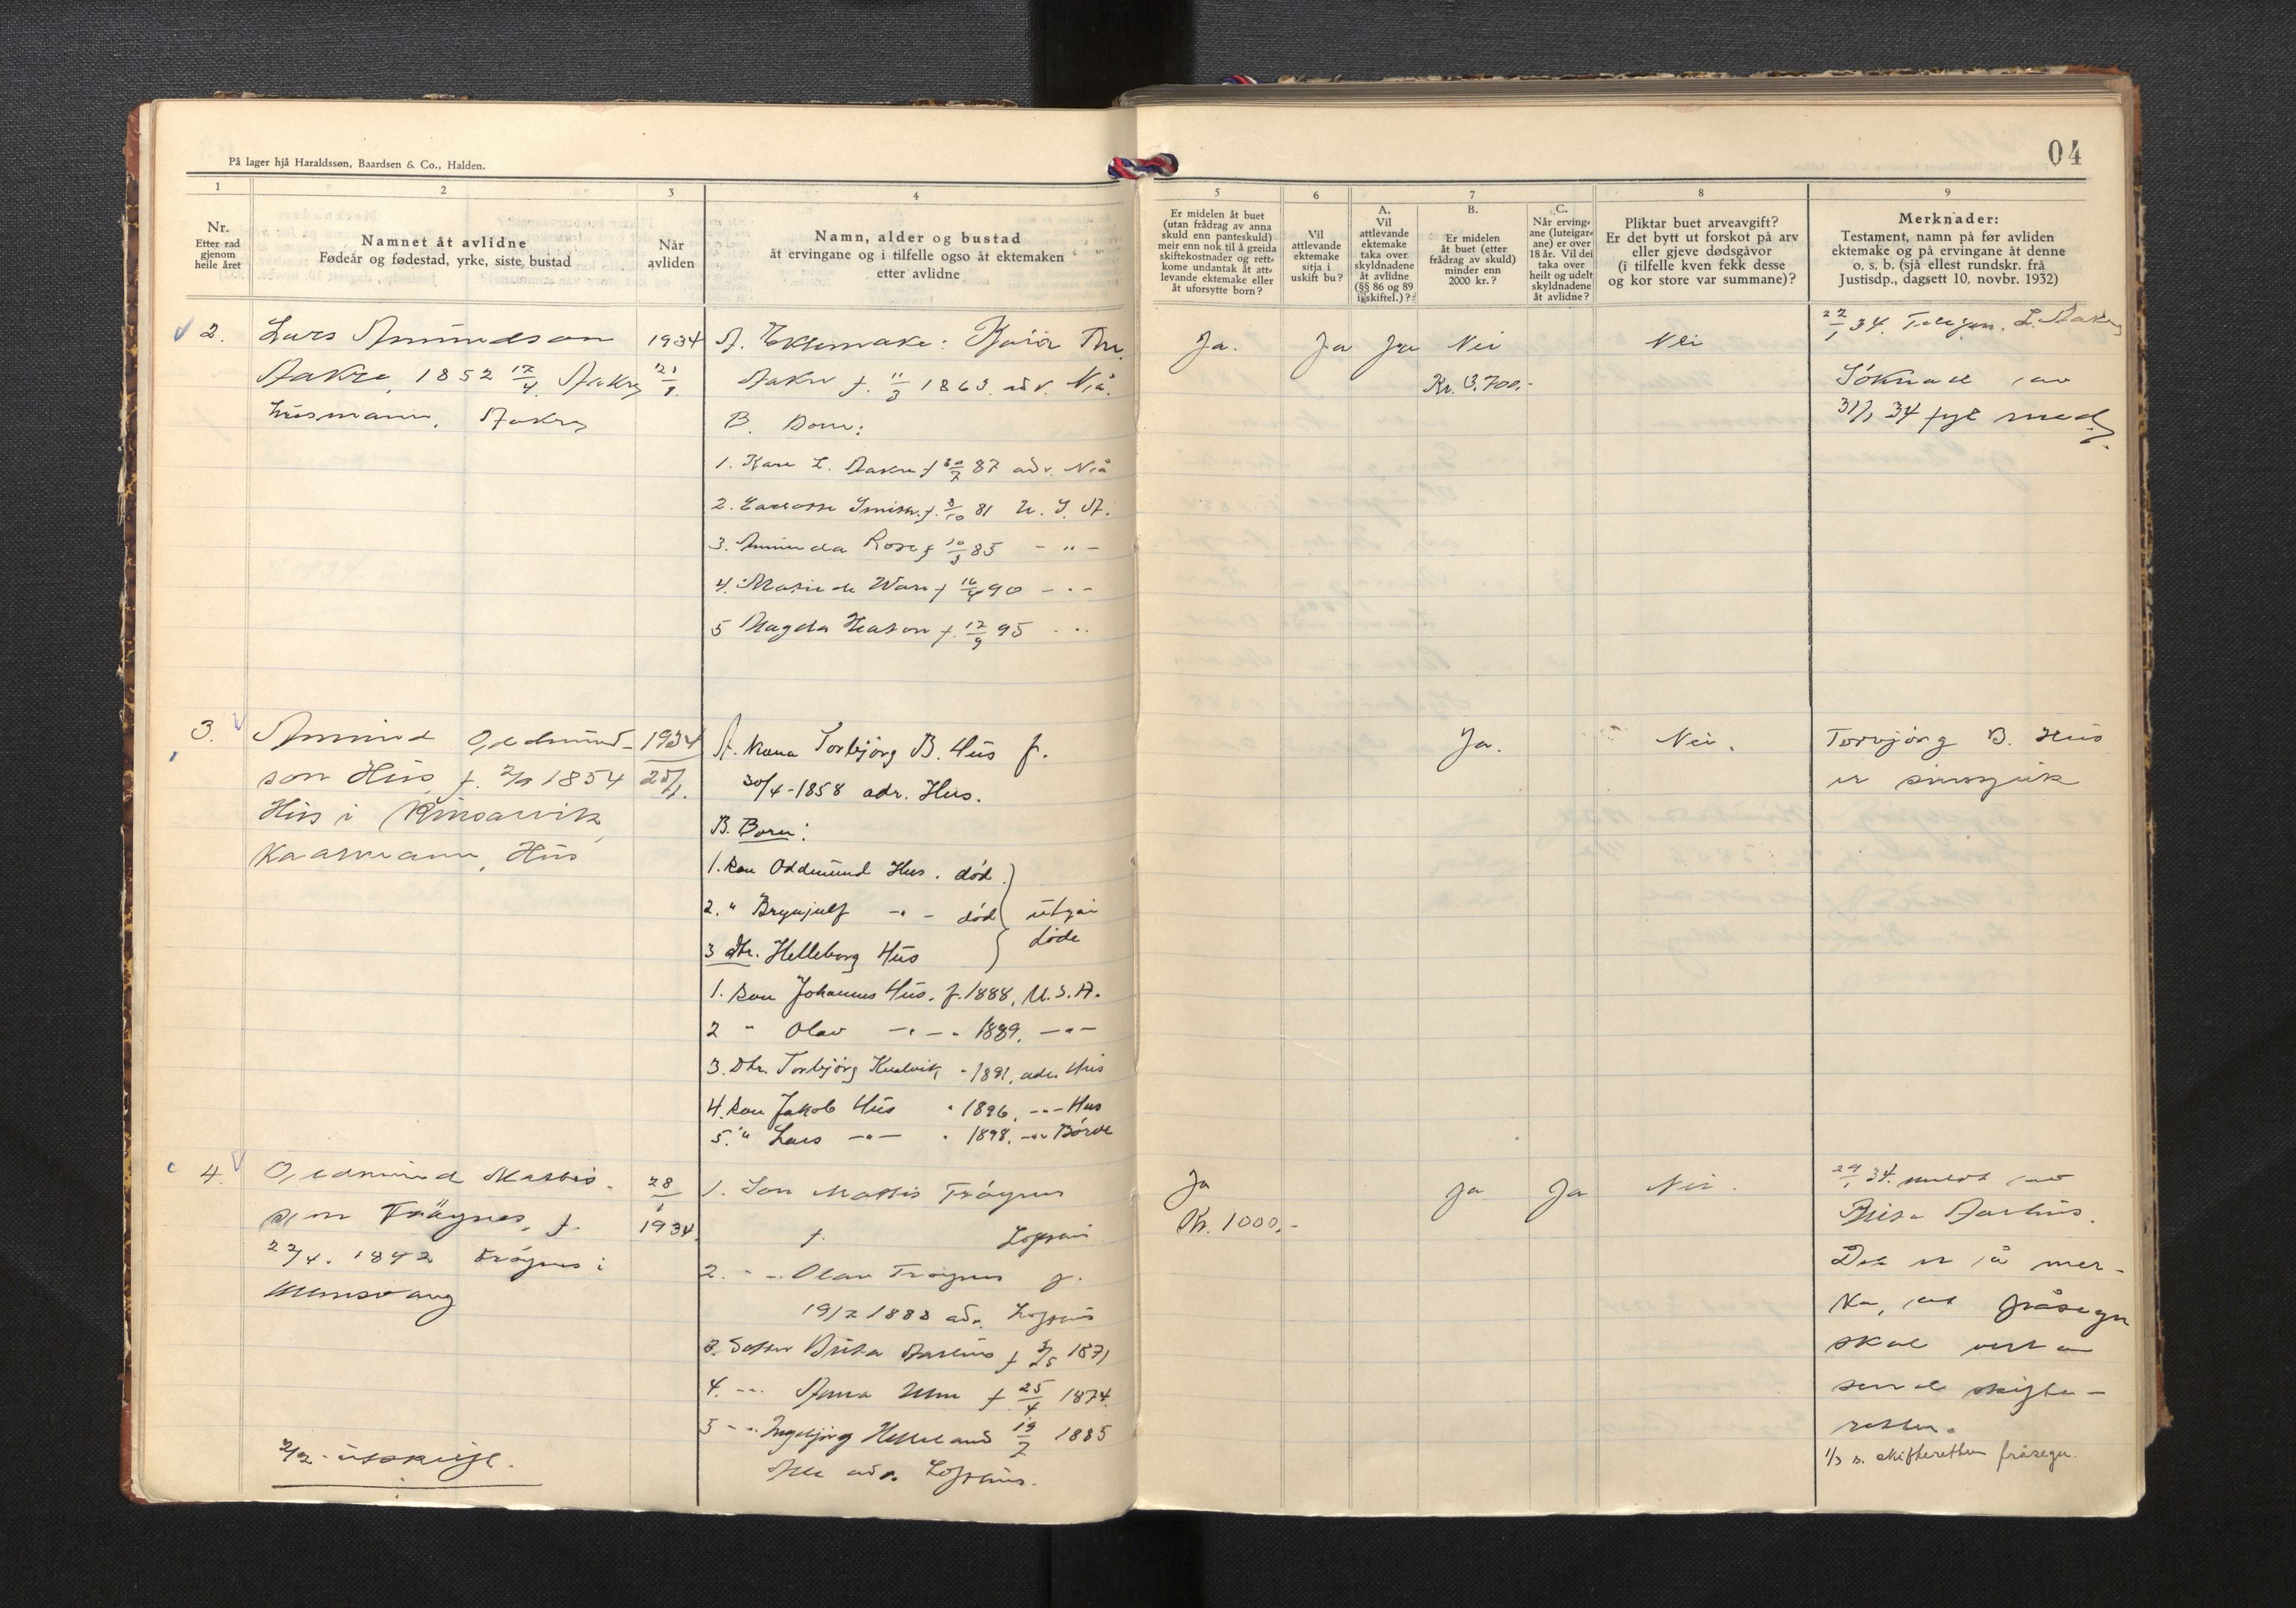 På lager hjå Haraldssøn, Baardsen & Co., Halden.
04
1
2
3
4
5
6
7
8
9
Nr.
Etter rad
gjenom
heile året
Namnet åt avlidne
Fødeår og fødestad, yrke, siste bustad
Når
avliden
Namn, alder og bustad
åt ervingane og i tilfelle også åt ektemaken
etter avlidne
Er midelen åt buet
(utan frådrag av anna
skuld enn panteskuld)
meir enn nok til å greida
skiftekostnader og rett-
kome undantak åt att-
levande ektemake eller
åt uforsytte born?
Vil
attlevande
ektemake
sitja i
uskift bu?
A.
Vil
attlevande
ektemake
taka over
skyldnadene
åt avlidne
(§§ 86 og 89
i skiftel.)?
B.
Er midelen
åt buet (etter
frådrag av skuld)
minder enn
2000 kr.?
C.
Når erving-
ane (luteigar-
ane) er over
18 år. Vil dei
taka over
heilt og udelt
skyldnadene
åt avlidne?
Pliktar buet arveavgift?
Er det bytt ut forskot på arv
eller gjeve dødsgåvor
(i tilfelle kven fekk desse
og kor store var summane)?
Merknader:
Testament, namn på før avliden
ektemake og på ervingane åt denne
o. s. b. (sjå ellest rundskr. frå
Justisdp., dagsett 10. novbr. 1932)
2.
Lars Amundson
Aakre, 1852 17/4 Aakre
husmann, Aakre
1934
21/1.
A. Ektemake:
Aakre f. 11/3 1863 adr.
B. Born:
1. Kari L. Aakre f 30/7 87 adr.
2. f. 3/10 81 U. S. A.
3. Amunda Rose f 10/3 85 - " -
4. f 16/4 90 - " -
5 Magda f. 17/9 95 - " -
Ja.
Ja
Ja
Nei
Kr. 3.700.-
Nei
22/1 34. L. Aakre
Søknad av
31/1 34 fylt med
3.
Amund Oddmund-
son Hus, f. 1854
Hus i Kinsarvik
Kaarmann, Hus
1934
25/1.
A. Kona Torbjörg B. Hus f.
30/4-1858 adr. Hus.
B. Born:
1. Son Oddmund Hus. död
2. " Brynjulf - " - död
3 dtr. Helleborg Hus
utgår
döde
1. Son Johannes Hus. f. 1888, U.S.A.
2 " Olav - " - " 1889. - " -
3. Dtr. Torbjörg " 1891. adr. Hus
4. Son Jakob Hus " 1896. - " - Hus
5. " Lars - " - " 1898. - " - Börve
Ja.
Nei.
Torbjörg B. Hus
er sinnsjuk
4.
Oddmund Mattis-
son Tröynes, f.
22/4. 1842 Tröynes i
Ullensvang
28/1
1934
1. Son Mattis Tröynes
f. Lofthus
2. - " - Olav Tröynes f.
19/7 1883 adr. Lofthus
3. Dotter Brita Aarhus f 1871
4. - " - Anna f 25/4 1874.
5 - " - Ingebjörg Helleland 19/7 1885
Alle adr. Lofthus.
2/2 - utskrift.
Ja
Kr. 1000.-
Ja
Ja
Nei.
29/1 34. meldt av
Brita Aarhus.
Det er å mer-
ka, at fråsegn
skal verta
send skifte-
retten.
1/3 s. skifteretten fråsegn.